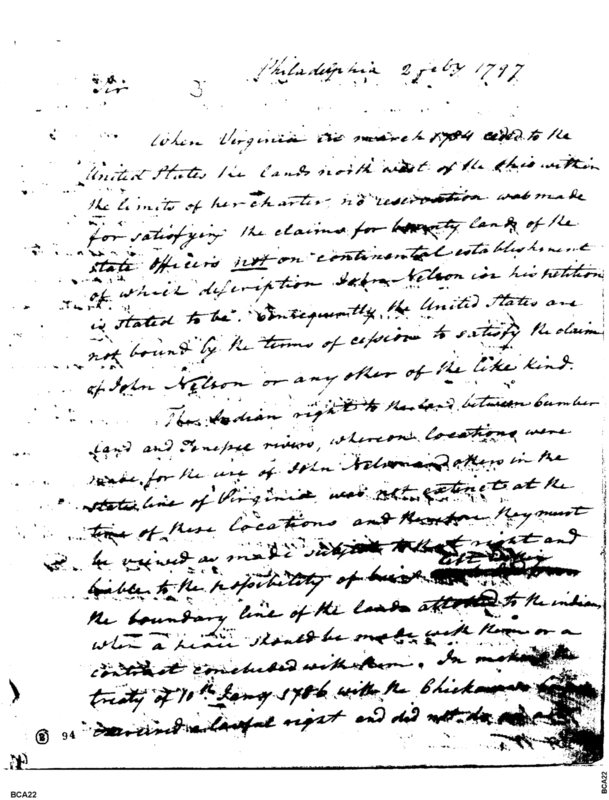 Philadelphia 2 feby 1797
Sir 3
When Virginia in march 1784 ceded to the
United States the lands north west of the Ohio within
the limits of her charter no reservation was made
for satisfying the claims for bounty lands of the
state officers not on continental establishment
of which description John Nelson in his petition
is stated to be. Consequently, the United States are
not bound by the terms of cession to satisfy the claim
of John Nelson or any other of the like kind.
The Indian right to the land between Cumber
land and Tenessee rivers, whereon locations were
made for the use of John Nelson and others in the
state line of Virginia was not extinct at the
time of these locations and therefore they must
be viewed as made subject to that right and
liable to the possibility of being
the boundary line of the lands allotted to the indians
when a peace should be made with them or a
contract concluded with them. In making the
treaty of 10th Jany 1786 with the Chickasaws
exercised a lawful right and did not do
B 94
BCA22
BCA22